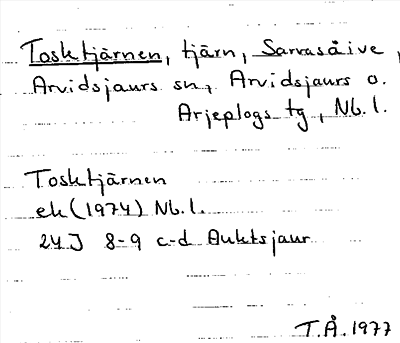 Tosktjärnen, tjärn, Sarvasåive,
Arvidsjaurs sn, Arvidsjaurs o.
Arjeplogs tg, Nb. l.
Tosktjärnen
ek (1974) Nb. l.
24J 8-9 c-d Auktsjaur
T.Å. 1977